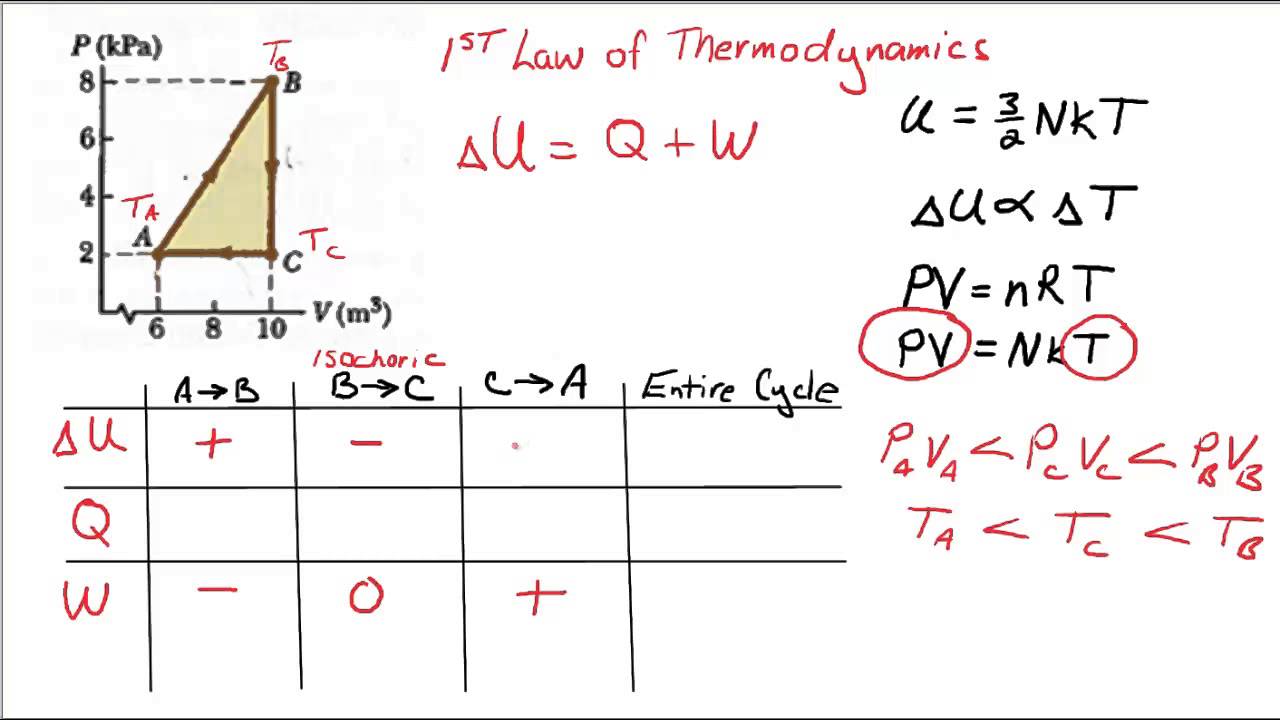 P (kPa)
8
6
4
2
6 8 10
V (m³)
T_B
B
T_A
A
T_C
C
1ST Law of Thermodynamics
ΔU = Q + W
U = 3/2 NkT
ΔU ∝ ΔT
PV = nRT
PV = NkT
P_A V_A < P_C V_C < P_B V_B
T_A < T_C < T_B
Isochoric
A→B B→C C→A Entire Cycle
ΔU + −
Q
W − 0 +